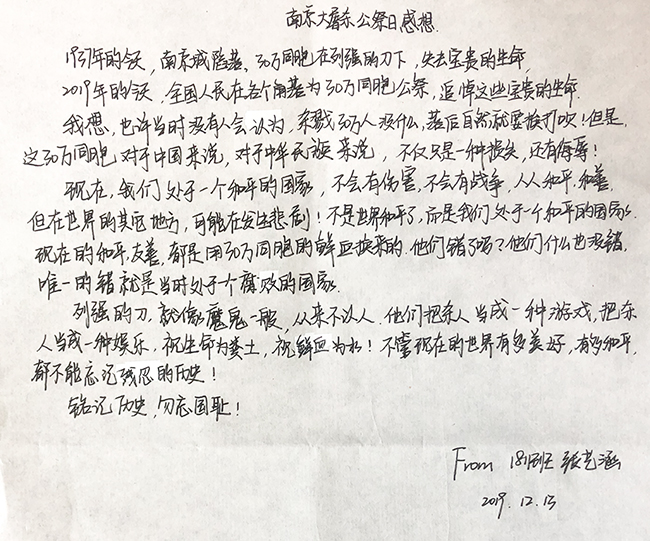 南京大屠杀公祭日感想.
1937年的今天,南京城陷落、30万同胞在列强的刀下,失去宝贵的生命,
2019年的今天,全国人民在各个角落为30万同胞公祭,追悼这些宝贵的生命.
我想,也许当时没有人会认为,杀戮30万人没什么,落后自然就要挨打吹!但是,
这30万同胞,对于中国来说,对于中华民族来说,不仅只是一种损失,还有侮辱!
现在,我们处于一个和平的国家,不会有伤害,不会有战争,人人和平,和善,
但在世界的其它地方,可能在发生悲剧!不是世界和平了,而是我们处于一个和平的国家.
现在的和平,友善,都是用30万同胞的鲜血换来的.他们错了吗?他们什么也没错,
唯一的错就是当时处于个腐败的国家.
列强的刀,就像魔鬼一般,从来不认人.他们把杀人当成一种游戏,把杀
人当成一种娱乐,视生命为粪土,视鲜血为水!不管现在的世界有多美好,有多和平,
都不能忘记残忍的历史!
铭记历史,勿忘国耻!
From 1819班 张艺涵
2019.12.13